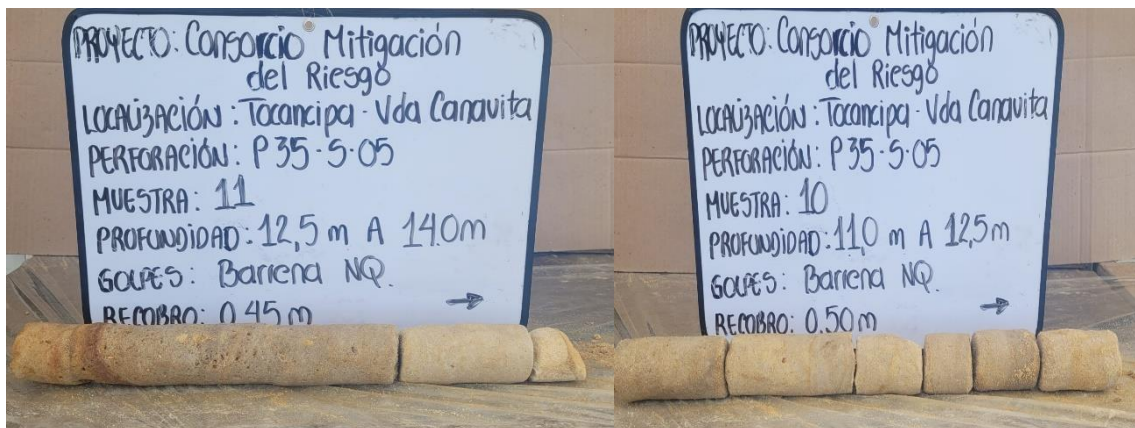 PROYECTO: Consorcio Mitigación
del Riesgo
LOCALIZACIÓN: Tocancipa - Vda Canavita
PERFORACIÓN: P35-S-05
MUESTRA: 11
PROFUNDIDAD: 12,5 m A 14.0m
GOLPES: Barrena NQ.
RECOBRO: 0.45 m
PROYECTO: Consorcio Mitigación
del Riesgo
LOCALIZACIÓN: Tocancipa - Vda Canavita
PERFORACIÓN: P35-S-05
MUESTRA: 10
PROFUNDIDAD: 11,0 m A 12,5m
GOLPES: Barrena NQ.
RECOBRO: 0.50m